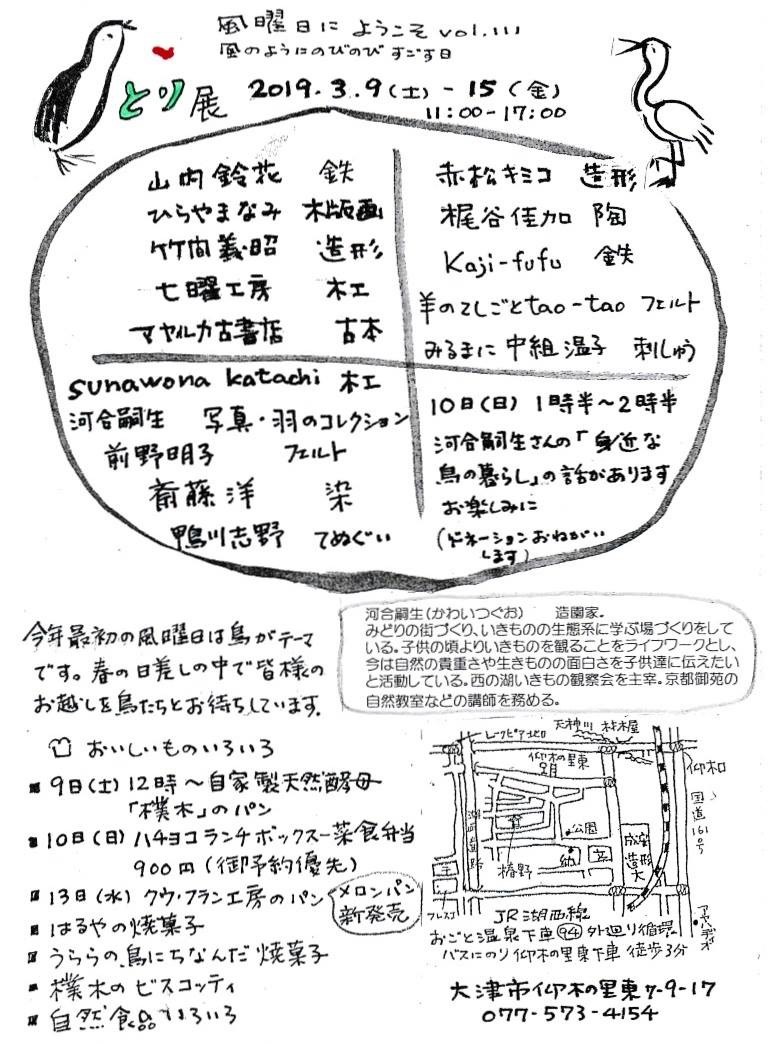 風曜日に ようこそ vol.111
風のようにのびのび すごす日
とり展 2019.3.9(土)-15(金)
11:00-17:00
山内鈴花 鉄
ひらやまなみ 木版画
竹間義昭 造形
七曜工房 木工
マヤルカ古書店 古本
赤松キミコ 造形
梶谷佳加 陶
Kaji-fufu 鉄
羊のてしごとtao-tao フェルト
みるまに 中組温子 刺しゅう
sunawona katachi 木工
河合嗣生 写真・羽のコレクション
前野明子 フェルト
斎藤洋 染
鴨川志野 てぬぐい
10日(日) 1時半〜2時半
河合嗣生さんの「身近な
鳥の暮らし」の話があります
お楽しみに
(ドネーションおねがい
します)
河合嗣生(かわいつぐお) 造園家。
みどりの街づくり、いきものの生態系に学ぶ場づくりをして
いる。子供の頃よりいきものを観ることをライフワークとし、
今は自然の貴重さや生きものの面白さを子供達に伝えたい
と活動している。西の湖いきもの観察会を主宰。京都御苑の
自然教室などの講師を務める。
今年最初の風曜日は鳥がテーマ
です。春の日差しの中で皆様の
お越しを鳥たちとお待ちしています。
おいしいものいろいろ
9日(土) 12時〜自家製天然酵母
「樸木」のパン
10日(日) ハチヨコランチボックスー菜食弁当
900円(御予約優先)
13日(水) クウ・フラン工房のパン
メロンパン
新発売
はるやの焼菓子
うららの鳥にちなんだ焼菓子
樸木のビスコッティ
自然食品いろいろ
天神川
仰木の里東
仰木口
国道161号
公園
椿野
成安
造形
大
フレスコ
アヤハディオ
JR湖西線
おごと温泉下車 94 外廻り循環
バスにのり仰木の里東下車 徒歩3分
大津市仰木の里東7-9-17
077-573-4154